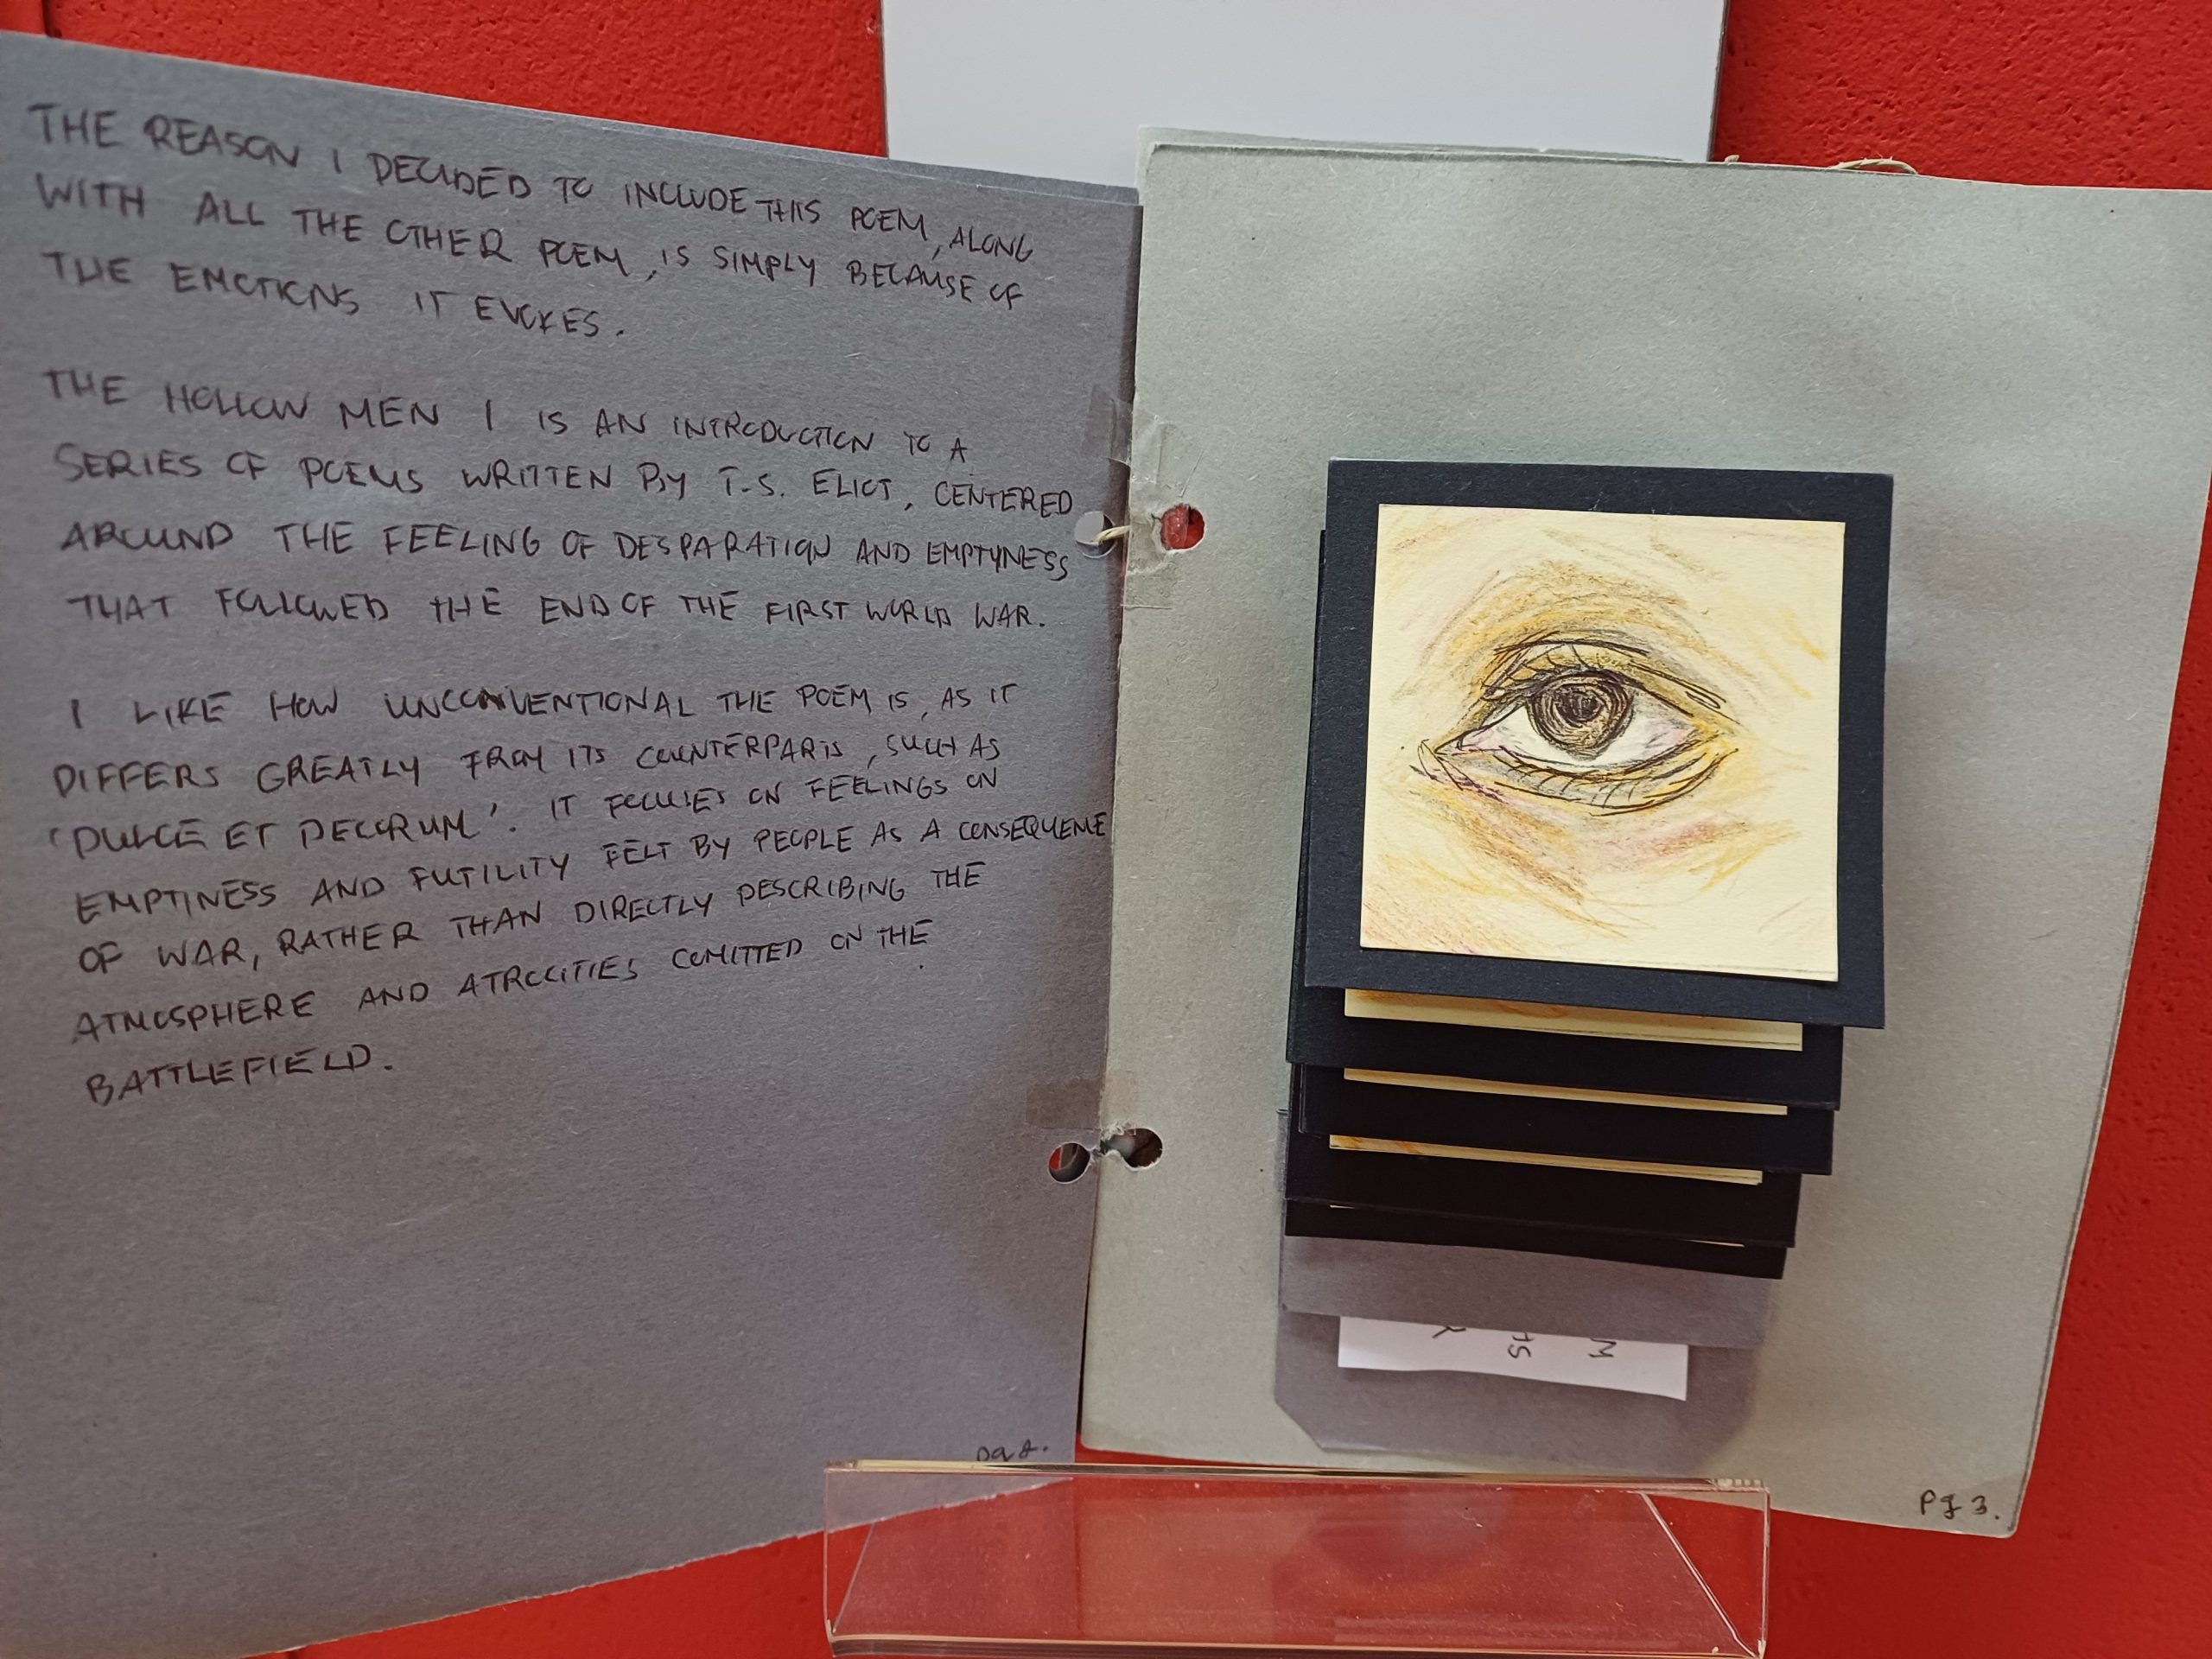 THE REASON I DECIDED TO INCLUDE THIS POEM, ALONG
WITH ALL THE OTHER POEM, IS SIMPLY BECAUSE OF
THE EMOTIONS IT EVOKES.
THE HOLLOW MEN I IS AN INTRODUCTION TO A
SERIES OF POEMS WRITTEN BY T.S. ELIOT, CENTERED
AROUND THE FEELING OF DESPARATION AND EMPTYNESS
THAT FOLLOWED THE END OF THE FIRST WORLD WAR.
I LIKE HOW UNCONVENTIONAL THE POEM IS, AS IT
DIFFERS GREATLY FROM ITS COUNTERPARTS, SUCH AS
'DULCE ET DECORUM'. IT FOCUSES ON FEELINGS ON
EMPTINESS AND FUTILITY FELT BY PEOPLE AS A CONSEQUENCE
OF WAR, RATHER THAN DIRECTLY DESCRIBING THE
ATMOSPHERE AND ATROCITIES COMITTED ON THE
BATTLEFIELD.
Pg 3.